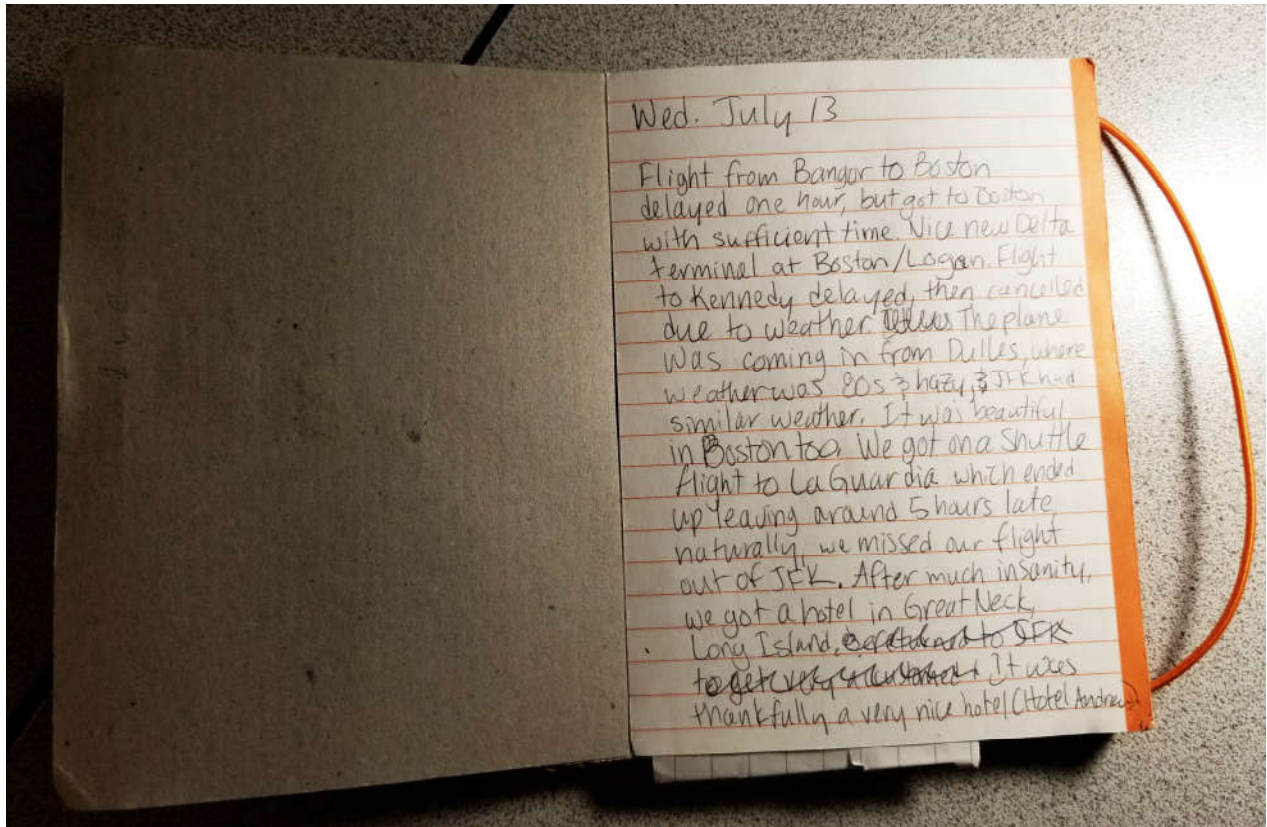 Wed. July 13
Flight from Bangor to Boston
delayed one hour, but got to Boston
with sufficient time. Nice new Delta
terminal at Boston/Logan. Flight
to Kennedy delayed, then cancelled
due to weather. The plane
was coming in from Dulles, where
weather was 80s & hazy, & JFK had
similar weather. It was beautiful
in Boston too. We got on a Shuttle
flight to La Guardia which ended
up leaving around 5 hours late,
naturally, we missed our flight
out of JFK. After much insanity,
we got a hotel in Great Neck,
Long Island, to JFK
to get It was
thankfully a very nice hotel (Hotel Andrew)